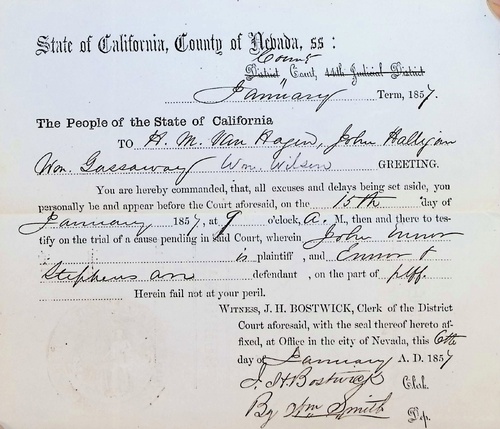 State of California, County of Nevada, ss:
County
District Court, 14th Judicial District
January Term, 1857.
The People of the State of California
TO H. M. Van Hagen, John Halligan
Wm. Gassaway Wm. Wilson GREETING.
You are hereby commanded, that, all excuses and delays being set aside, you
personally be and appear before the Court aforesaid, on the 15th day of
January 1857, at 9 o'clock, A. M., then and there to tes-
tify on the trial of a cause pending in said Court, wherein John
is plaintiff, and &
Stephens are defendant, on the part of plff.
Herein fail not at your peril.
WITNESS, J. H. BOSTWICK, Clerk of the District
Court aforesaid, with the seal thereof hereto af-
fixed, at Office in the city of Nevada, this 6th
day of January A. D. 1857
J. H. Bostwick Clerk.
By Wm Smith Dep.